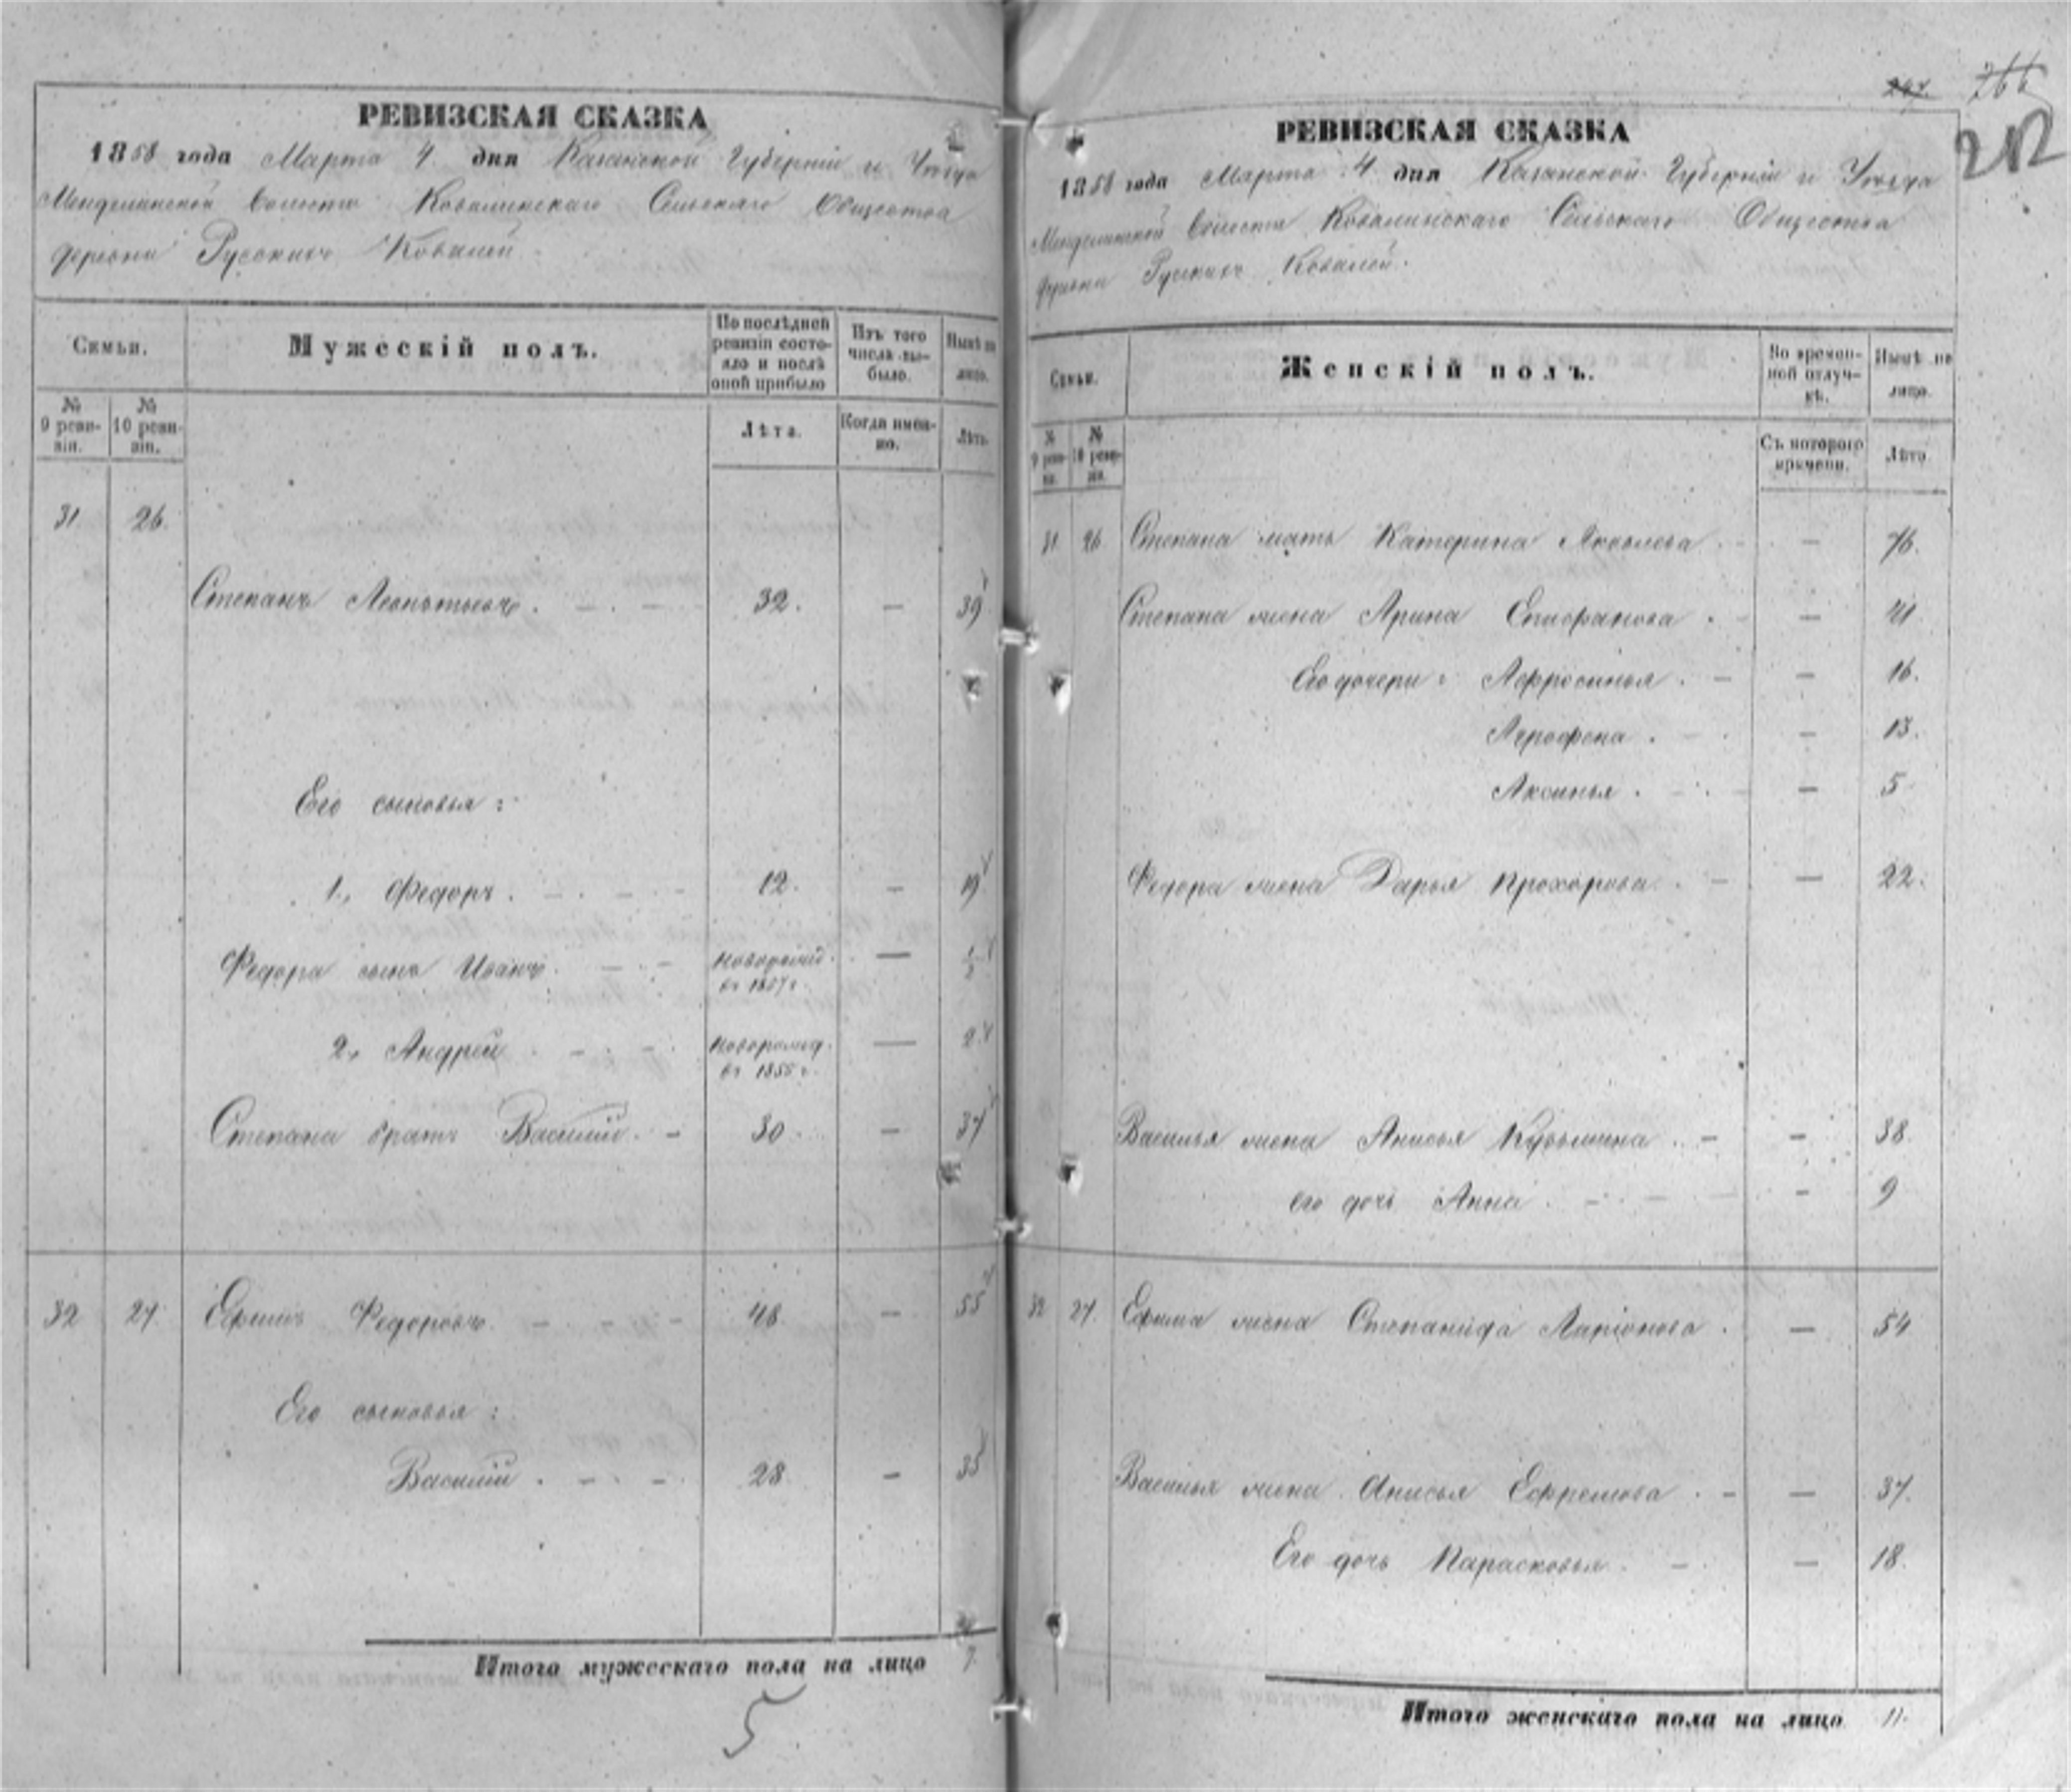 РЕВИЗСКАЯ СКАЗКА
1858 года Марта 4 дня Казанской Губерніи и Уѣзда
Менделинской волости Ковалинскаго Сельскаго Общества
деревни Русскихъ Ковалей
Семьи.
Мужескій полъ.
По послѣдней ревизіи состояло и послѣ оной прибыло
Изъ того числа выбыло.
Нынѣ на лицо.
№ 9 ревизіи.
№ 10 ревизіи.
Лѣта.
Когда именно.
Лѣта.
31 26.
Степанъ Леонтьевъ. 32. — 39
Его сыновья:
1., Федоръ. 12. — 19
Федора сынъ Иванъ. новорожд. въ 1857 г. — 1/2
2., Андрей новорожд. въ 1855 г. — 2
Степана братъ Василій. 30 — 37
32 27. Ефимъ Федоровъ. 48 — 55
Его сыновья:
Василій. 28 — 35
Итого мужескаго пола на лицо 7.
5
266
212
РЕВИЗСКАЯ СКАЗКА
1858 года Марта 4 дня Казанской Губерніи и Уѣзда
Менделинской волости Ковалинскаго Сельскаго Общества
деревни Русскихъ Ковалей.
Семьи.
Женскій полъ.
Во временной отлучкѣ.
Нынѣ на лицо.
№ 9 ревизіи.
№ 10 ревизіи.
Съ котораго времени.
Лѣта.
31 26 Степана мать Катерина Яковлева — 76.
Степана жена Арина Епифанова. — 41
Его дочери: Афросинья. — 16.
Аграфена. — 13.
Аксинья. — 5
Федора жена Дарья Прохорова. — 22.
Василья жена Анисья Кузьмина. — 38
его дочь Анна. — 9
32 27. Ефима жена Степанида Ларіонова. — 54
Василья жена Анисья Ефремова. — 37.
Его дочь Парасковья. — 18.
Итого женскаго пола на лицо 11.